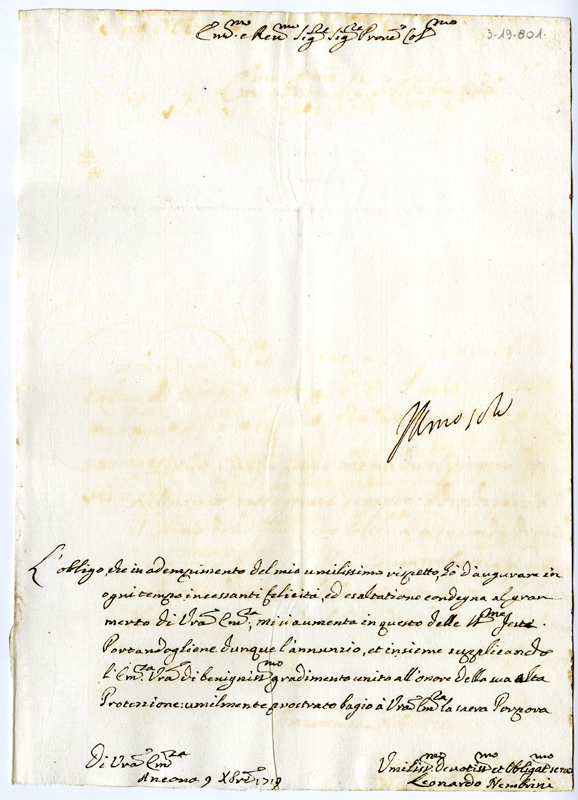 Em.mo e Ren.mo Sig.re Sig.re Prone Col.mo
3-19-801.
L'obligo, che in adempimento del mio umilissimo rispetto, hò d'augurare in
ogni tempo incessanti felicità, ed esaltatione condegna al gran
merto di Vra Em.za, mi si aumenta in questo delle S.me Feste.
Portandoglione dunque l'annunzio, et insieme supplicando
l'Em.za Vra di benigniss.mo gradimento unito all'onore della sua alta
Protezzione: umilmente prostrato bagio à Vra Em.za la sacra Porpora
Di Vra Em.za
Ancona 9 Xbre 1718
Umiliss.mo Devotiss.mo et Obligat.mo servo
Leonardo Nembrini